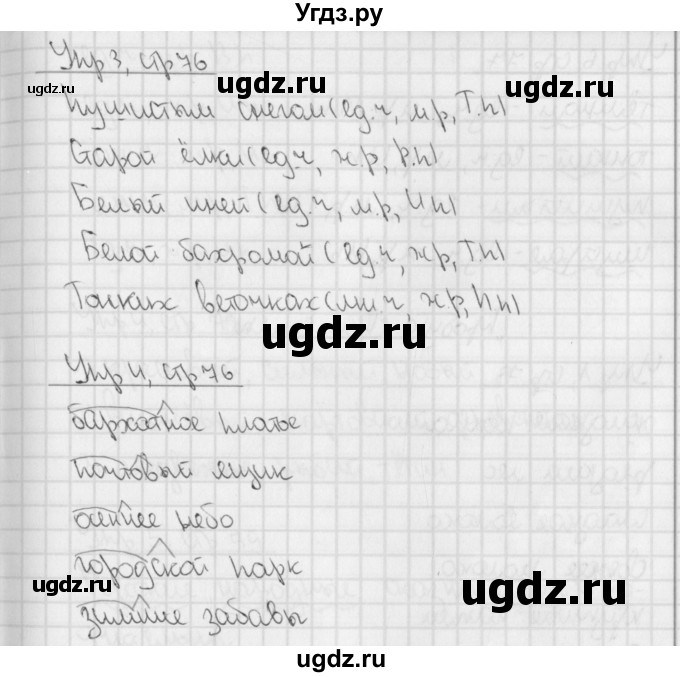 Угдз.ру
Упр 3, стр 76
ugdz.ru
ugdz.ru
ugdz.ru
Пушистым снегом (ед.ч, м.р, Т.п)
Старой ёлки (ед.ч, ж.р, Р.п)
Белый иней (ед.ч, м.р, И п)
ugdz.ru
ugdz.ru
Белой бахромой (ед.ч, ж.р, Т.п)
Тонких веточках (мн.ч, ж.р, п)
ugdz.ru
ugdz.ru
Упр 4, стр 76
бархатное платье
ugdz.ru
ugdz.ru
почтовый ящик
осеннее небо
городской парк
ugdz.ru
ugdz.ru
зимние забавы
ugdz.ru